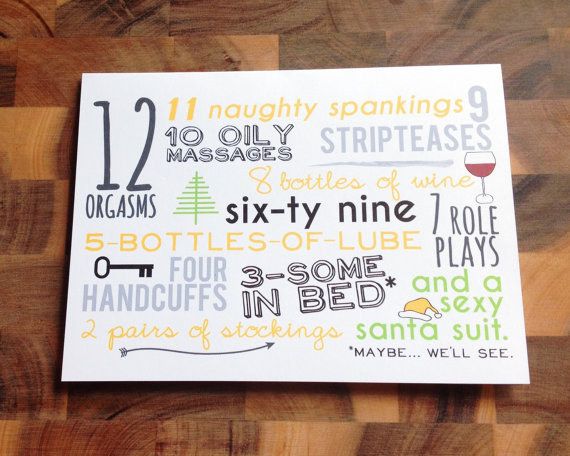 12 ORGASMS
11 naughty spankings
10 OILY MASSAGES
9 STRIPTEASES
8 bottles of wine
7 ROLE PLAYS
six-ty nine
5-BOTTLES-OF-LUBE
FOUR HANDCUFFS
3-SOME IN BED*
2 pairs of stockings
and a sexy santa suit.
*MAYBE... WE'LL SEE.